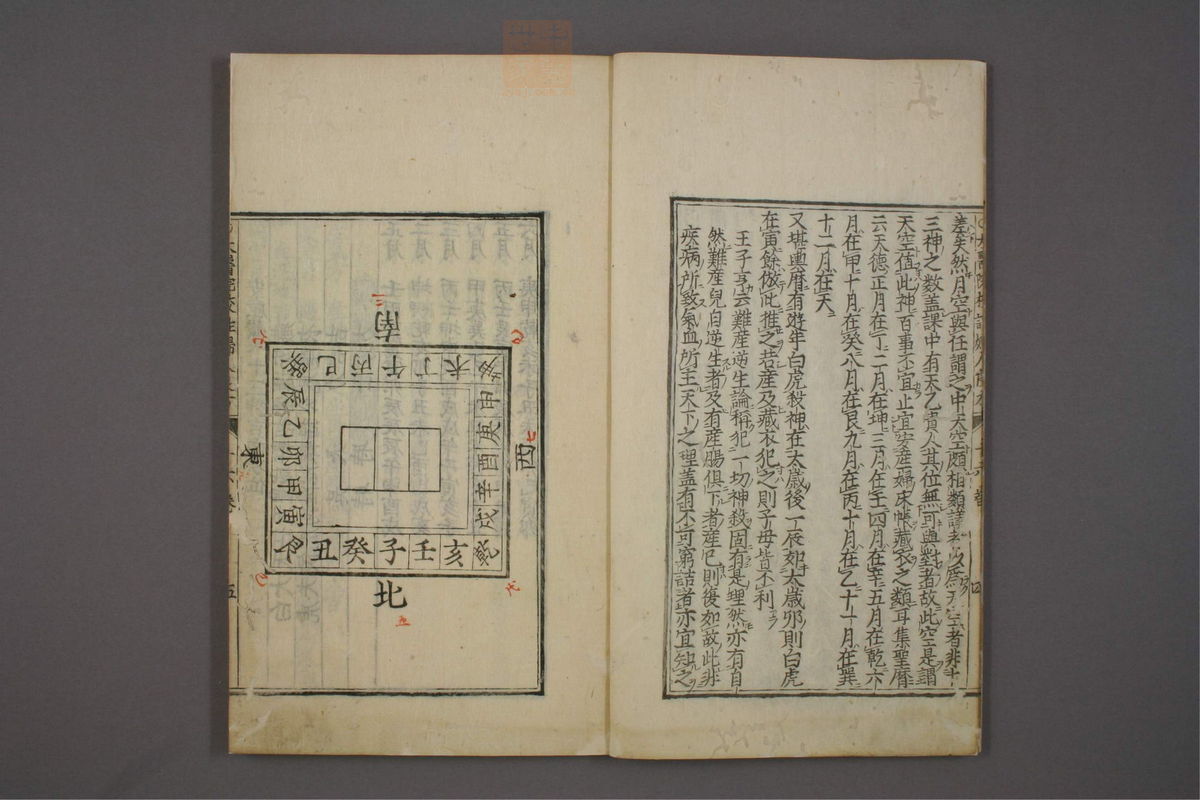 差失然月空與任謂之中天空頗相類謹考
三神之数盖課中有天乙貴人其位無可與對者故此空是謂
天空値此神百事不宜止宜安産婦床帳藏衣之類耳集聖曆
云天德正月在丁二月在坤三月在壬四月在辛五月在乾六
月在甲十月在癸八月在艮九月在丙十月在乙十一月在巽
十二月在天
又堪輿曆有遊年白虎殺神在太歳後一辰如太歳卯則白虎
在寅餘倣此推之若産及藏衣犯之則子母皆不利
王子亨云難産逆生論稱犯一切神殺固有是理然亦有自
然難産兒自逆生者及有産膓俱下者産已則復如故此非
疾病所致氣血所主天下之理蓋有不可窮詰者亦宜知之
四
南
巳丙午丁未
申庚酉辛戌
西
辰乙卯甲寅
東
丑癸子壬亥
北
五